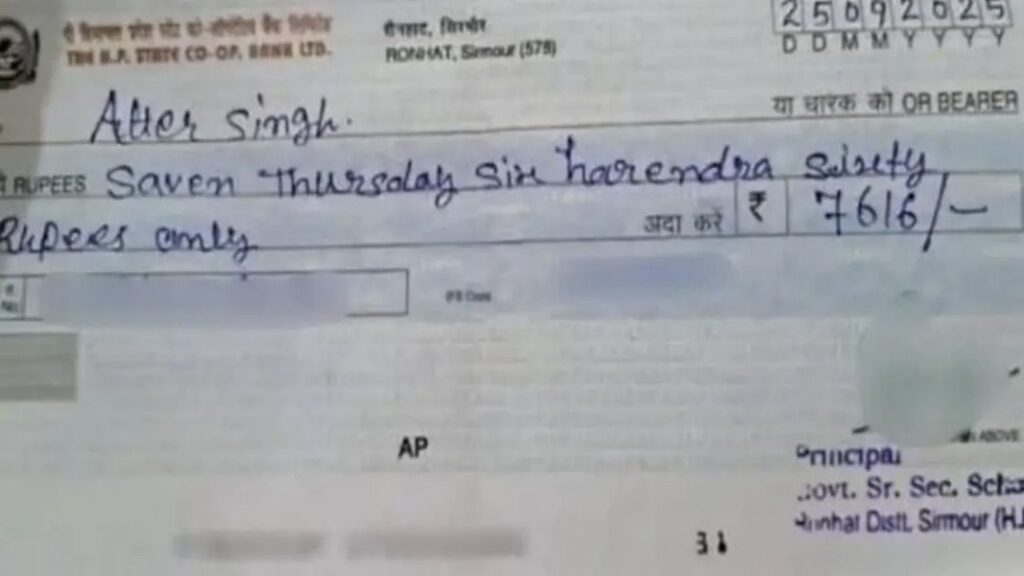 दी हिमाचल प्रदेश स्टेट को-ओपरेटिव बैंक लिमिटेड
THE H.P. STATE CO-OP. BANK LTD.
रोनहाट, सिरमौर
RONHAT, Sirmour (578)
25092025
DDMMYYYY
Atter Singh.
या धारक को OR BEARER
RUPEES Saven Thursday Six harendra sixty
Rupees only
अदा करें ₹ 7616/-
IFS Code
AP
ABOVE
Principal
Govt. Sr. Sec.
Ronhat Distt. Sirmour
31